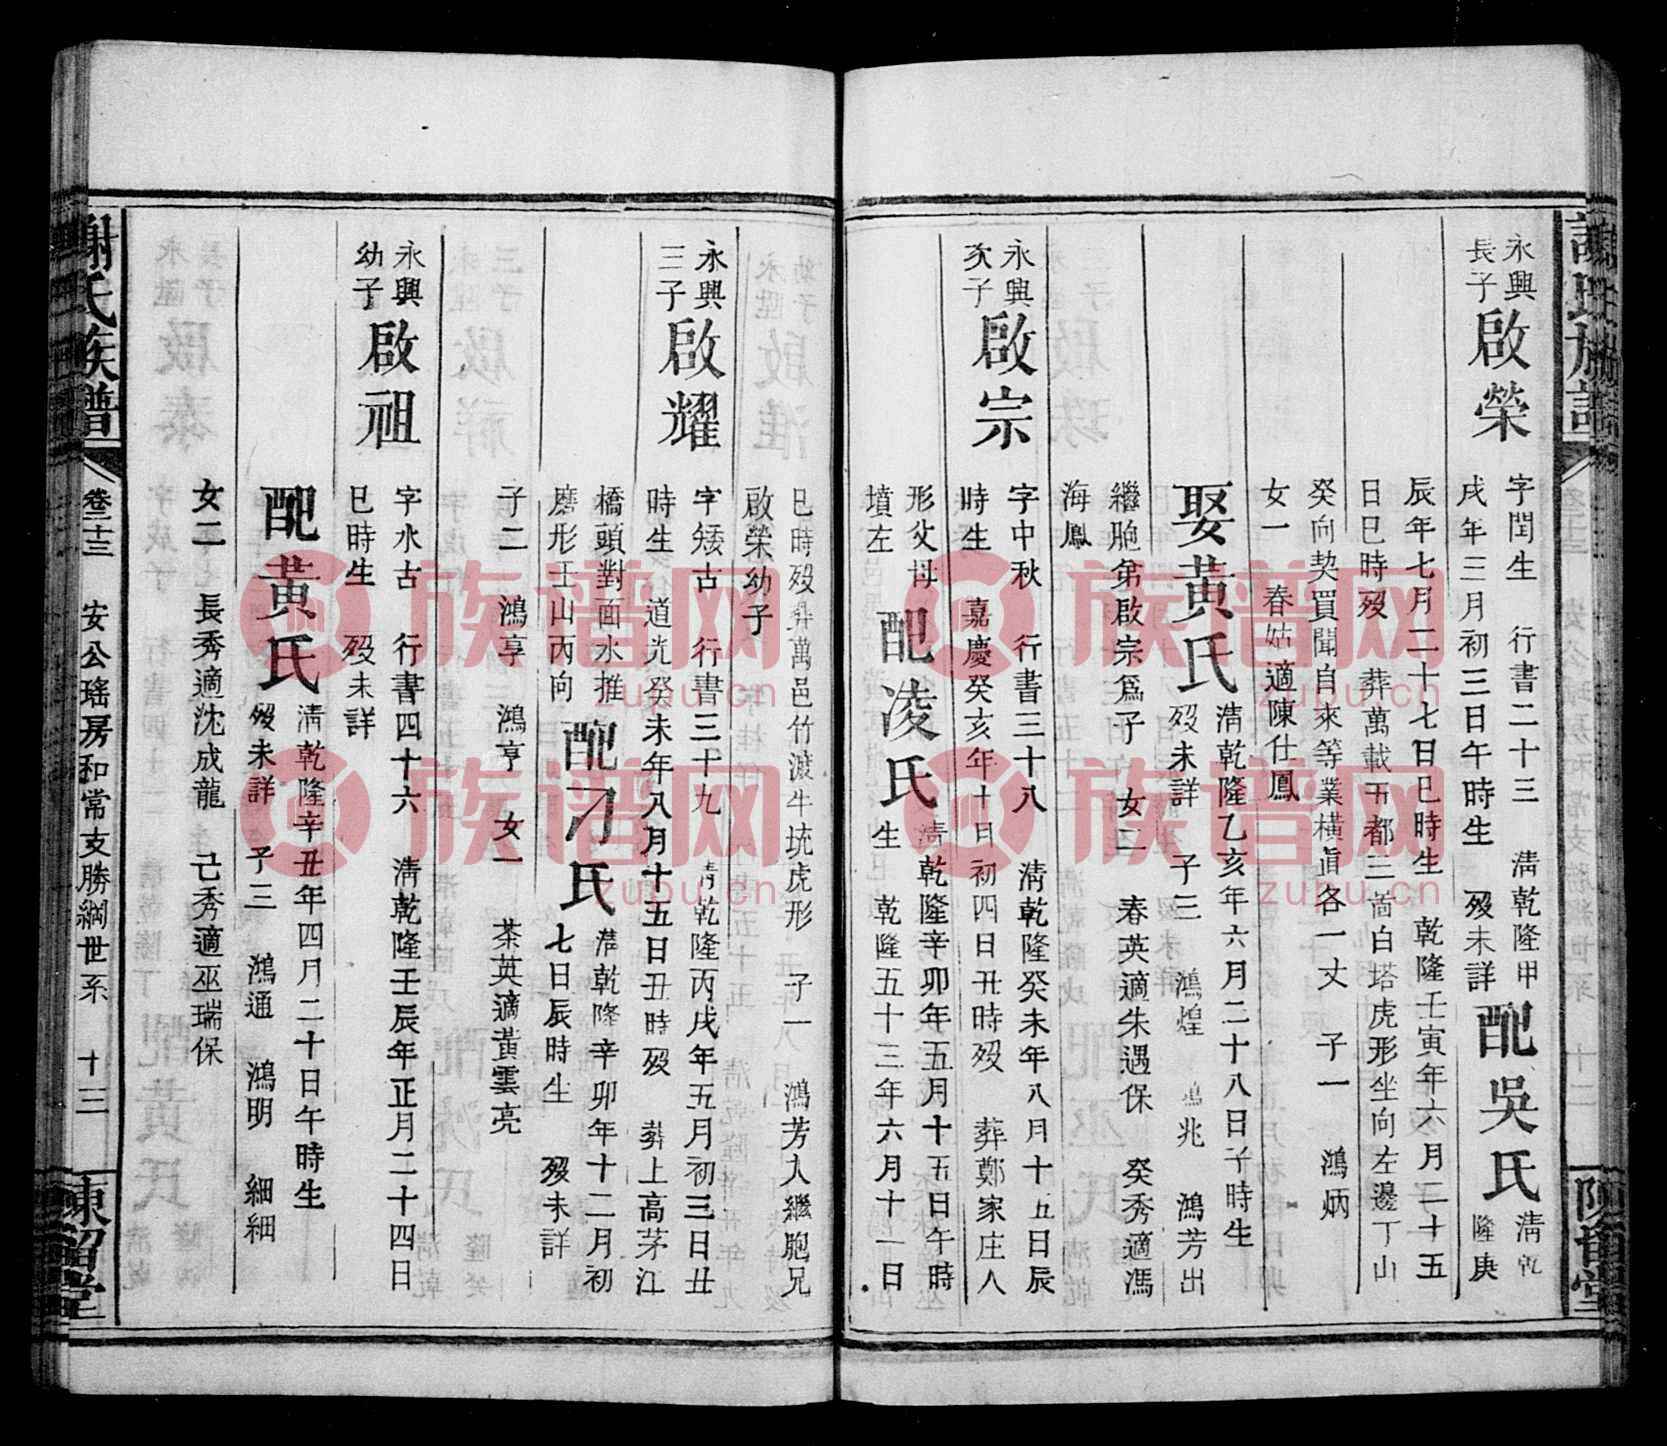 永興
長子
啟榮
字閏生 行書二十三 清乾隆甲
戌年三月初三日午時生 歿未詳
配吳氏
清乾
隆庚
辰年七月二十七日巳時生 乾隆壬寅年六月二十五
日巳時歿 葬萬載五都三啚白塔虎形坐向左邊丁山
癸向契買聞自來等業橫直各一丈 子一 鴻炳
女一 春姑適陳仕鳳
娶黃氏
清乾隆乙亥年六月二十八日子時生
歿未詳 子三 鴻煌 鴻兆 鴻芳出
繼胞弟啟宗爲子 女二 春英適朱遇保 癸秀適馮
海鳳
永興
次子
啟宗
字中秋 行書三十八 清乾隆癸未年八月十五日辰
時生 嘉慶癸亥年十日初四日丑時歿 葬鄭家庄人
形父母
墳左
配凌氏
清乾隆辛卯年五月十五日午時
生 乾隆五十三年六月十一日
巳時歿 葬萬邑竹渡牛坑虎形 子一 鴻芳入繼胞兄
啟榮幼子
永興
三子
啟耀
字矮古 行書三十九 清乾隆丙戌年五月初三日丑
時生 道光癸未年八月十五日丑時歿 葬上高茅江
橋頭對面水推
磨形壬山丙向
配刁氏
清乾隆辛卯年十二月初
七日辰時生 歿未詳
子二 鴻享 鴻亨 女一 茶英適黃雲亮
永興
幼子
啟祖
字水古 行書四十六 清乾隆壬辰年正月二十四日
巳時生 歿未詳
配黃氏
清乾隆辛丑年四月二十日午時生
歿未詳 子三 鴻通 鴻明 細細
女二 長秀適沈成龍 己秀適巫瑞保
謝氏族譜
卷二十三 安公瑤房和常支勝綱世系 十三
東留堂
族谱网
zupu.cn
族谱网
zupu.cn
族谱网
zupu.cn
族谱网
zupu.cn